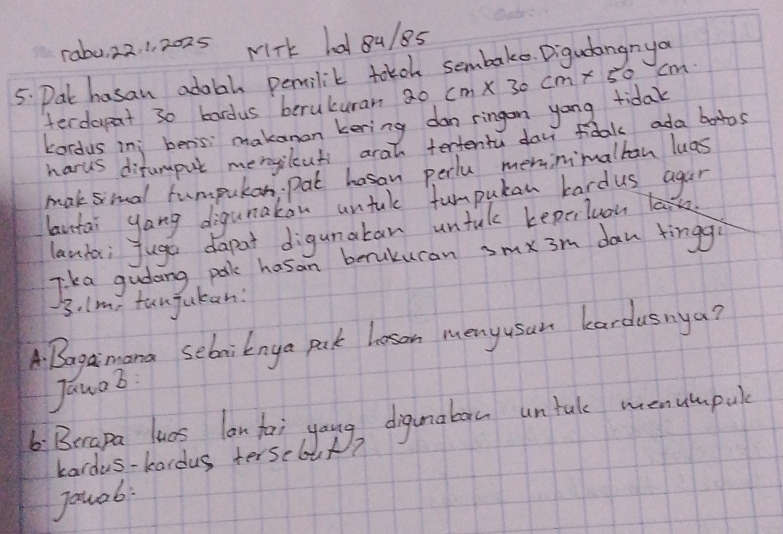 rabu, 22, 1, 2025 MTk hal 84/85
5. Pak hasan adalah pemilik tokoh sembako. Digudangnya
terdapat 30 kardus berukuran 20 cm x 30 cm x 50 cm.
kardus ini berisi makanan kering dan ringan yang tidak
harus ditumpuk mengikuti arah tertentu dan tidak ada batas
maksimal tumpukan. Pak hasan perlu meminimalkan luas
lantai yang digunakan untuk tumpukan kardus agar
lantai juga dapat digunakan untuk keperluan lain.
Jika gudang pak hasan berukuran 3m x 3m dan tinggi
3,1m, tunjukan:
A. Bagaimana sebaiknya pak hasan menyusun kardusnya?
Jawab:
b. Berapa luas lantai yang digunakan untuk menumpuk
kardus-kardus tersebut?
Jawab: